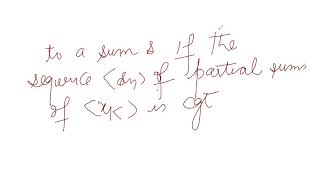 to a sum s if the
sequence <sn> of partial sums
of <xk> is cgt